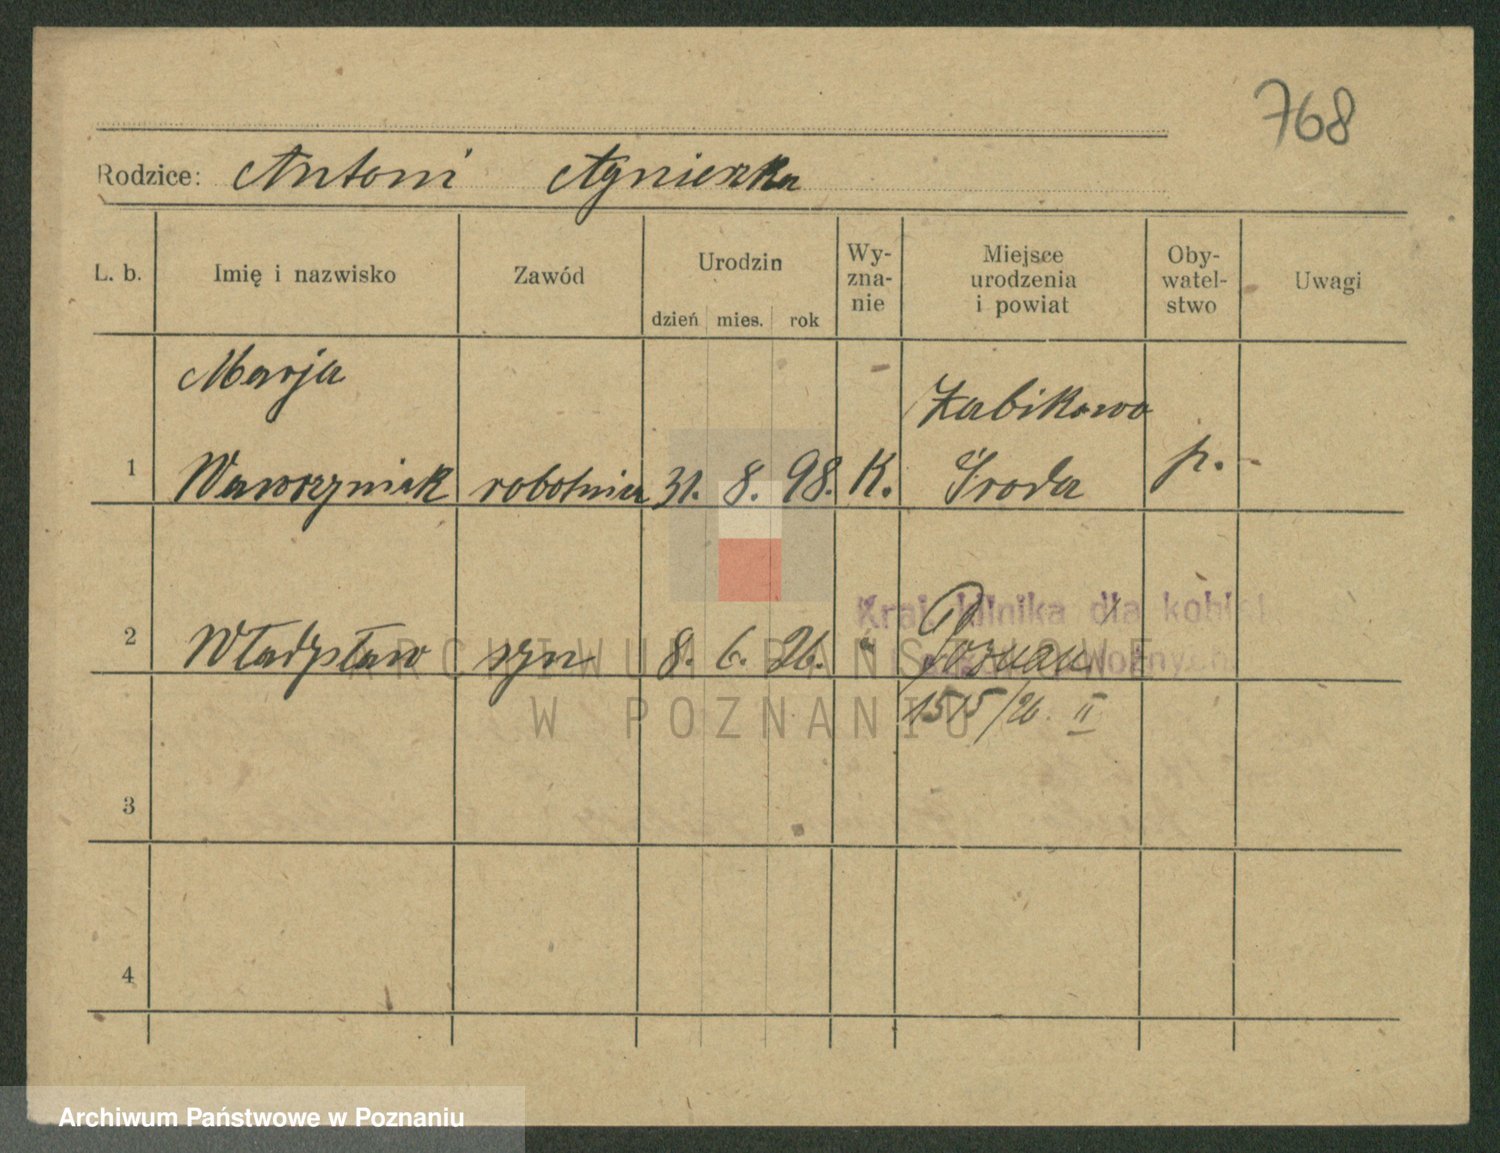 768
Rodzice: Antoni Agnieszka
L. b. Imię i nazwisko Zawód Urodzin Wy-zna-nie Miejsce urodzenia i powiat Oby-watel-stwo Uwagi
dzień mies. rok
Marja Żabikowo
1 Wawrzyniak robotnica 31. 8. 98. K. Środa p.
Kraj. klinika dla kobiet
2 Władysław syn 8. 6. 26. " Poznań
1515/26. II
3
4
ARCHIWUM PAŃSTWOWE
W POZNANIU
Archiwum Państwowe w Poznaniu